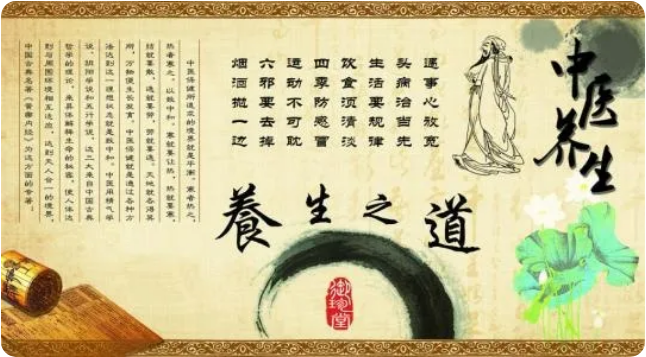 中医养生
遇事心放宽
头病治当先
生活要规律
饮食须清淡
四季防感冒
运动不可耽
六邪要去掉
烟酒抛一边
中医保健所追求的境界就是平衡，寒者热之，
热者寒之，以致中和。寒就要让热，热就要寒，
结就要散，逸就要劳，劳就要逸。天地就各得其
所，万物便生长发育。中医保健就是通过各种方
法达到这一理想状态就是致中和。中医用精气学
说、阴阳学说和五行学说，这三大来自中国古典
哲学的理论，来具体解释生命的秘密，使人体达
到与周围环境相互适应，达到天人合一的境界，
中国古典名著《黄帝内经》为这方面的专著；
養生之道